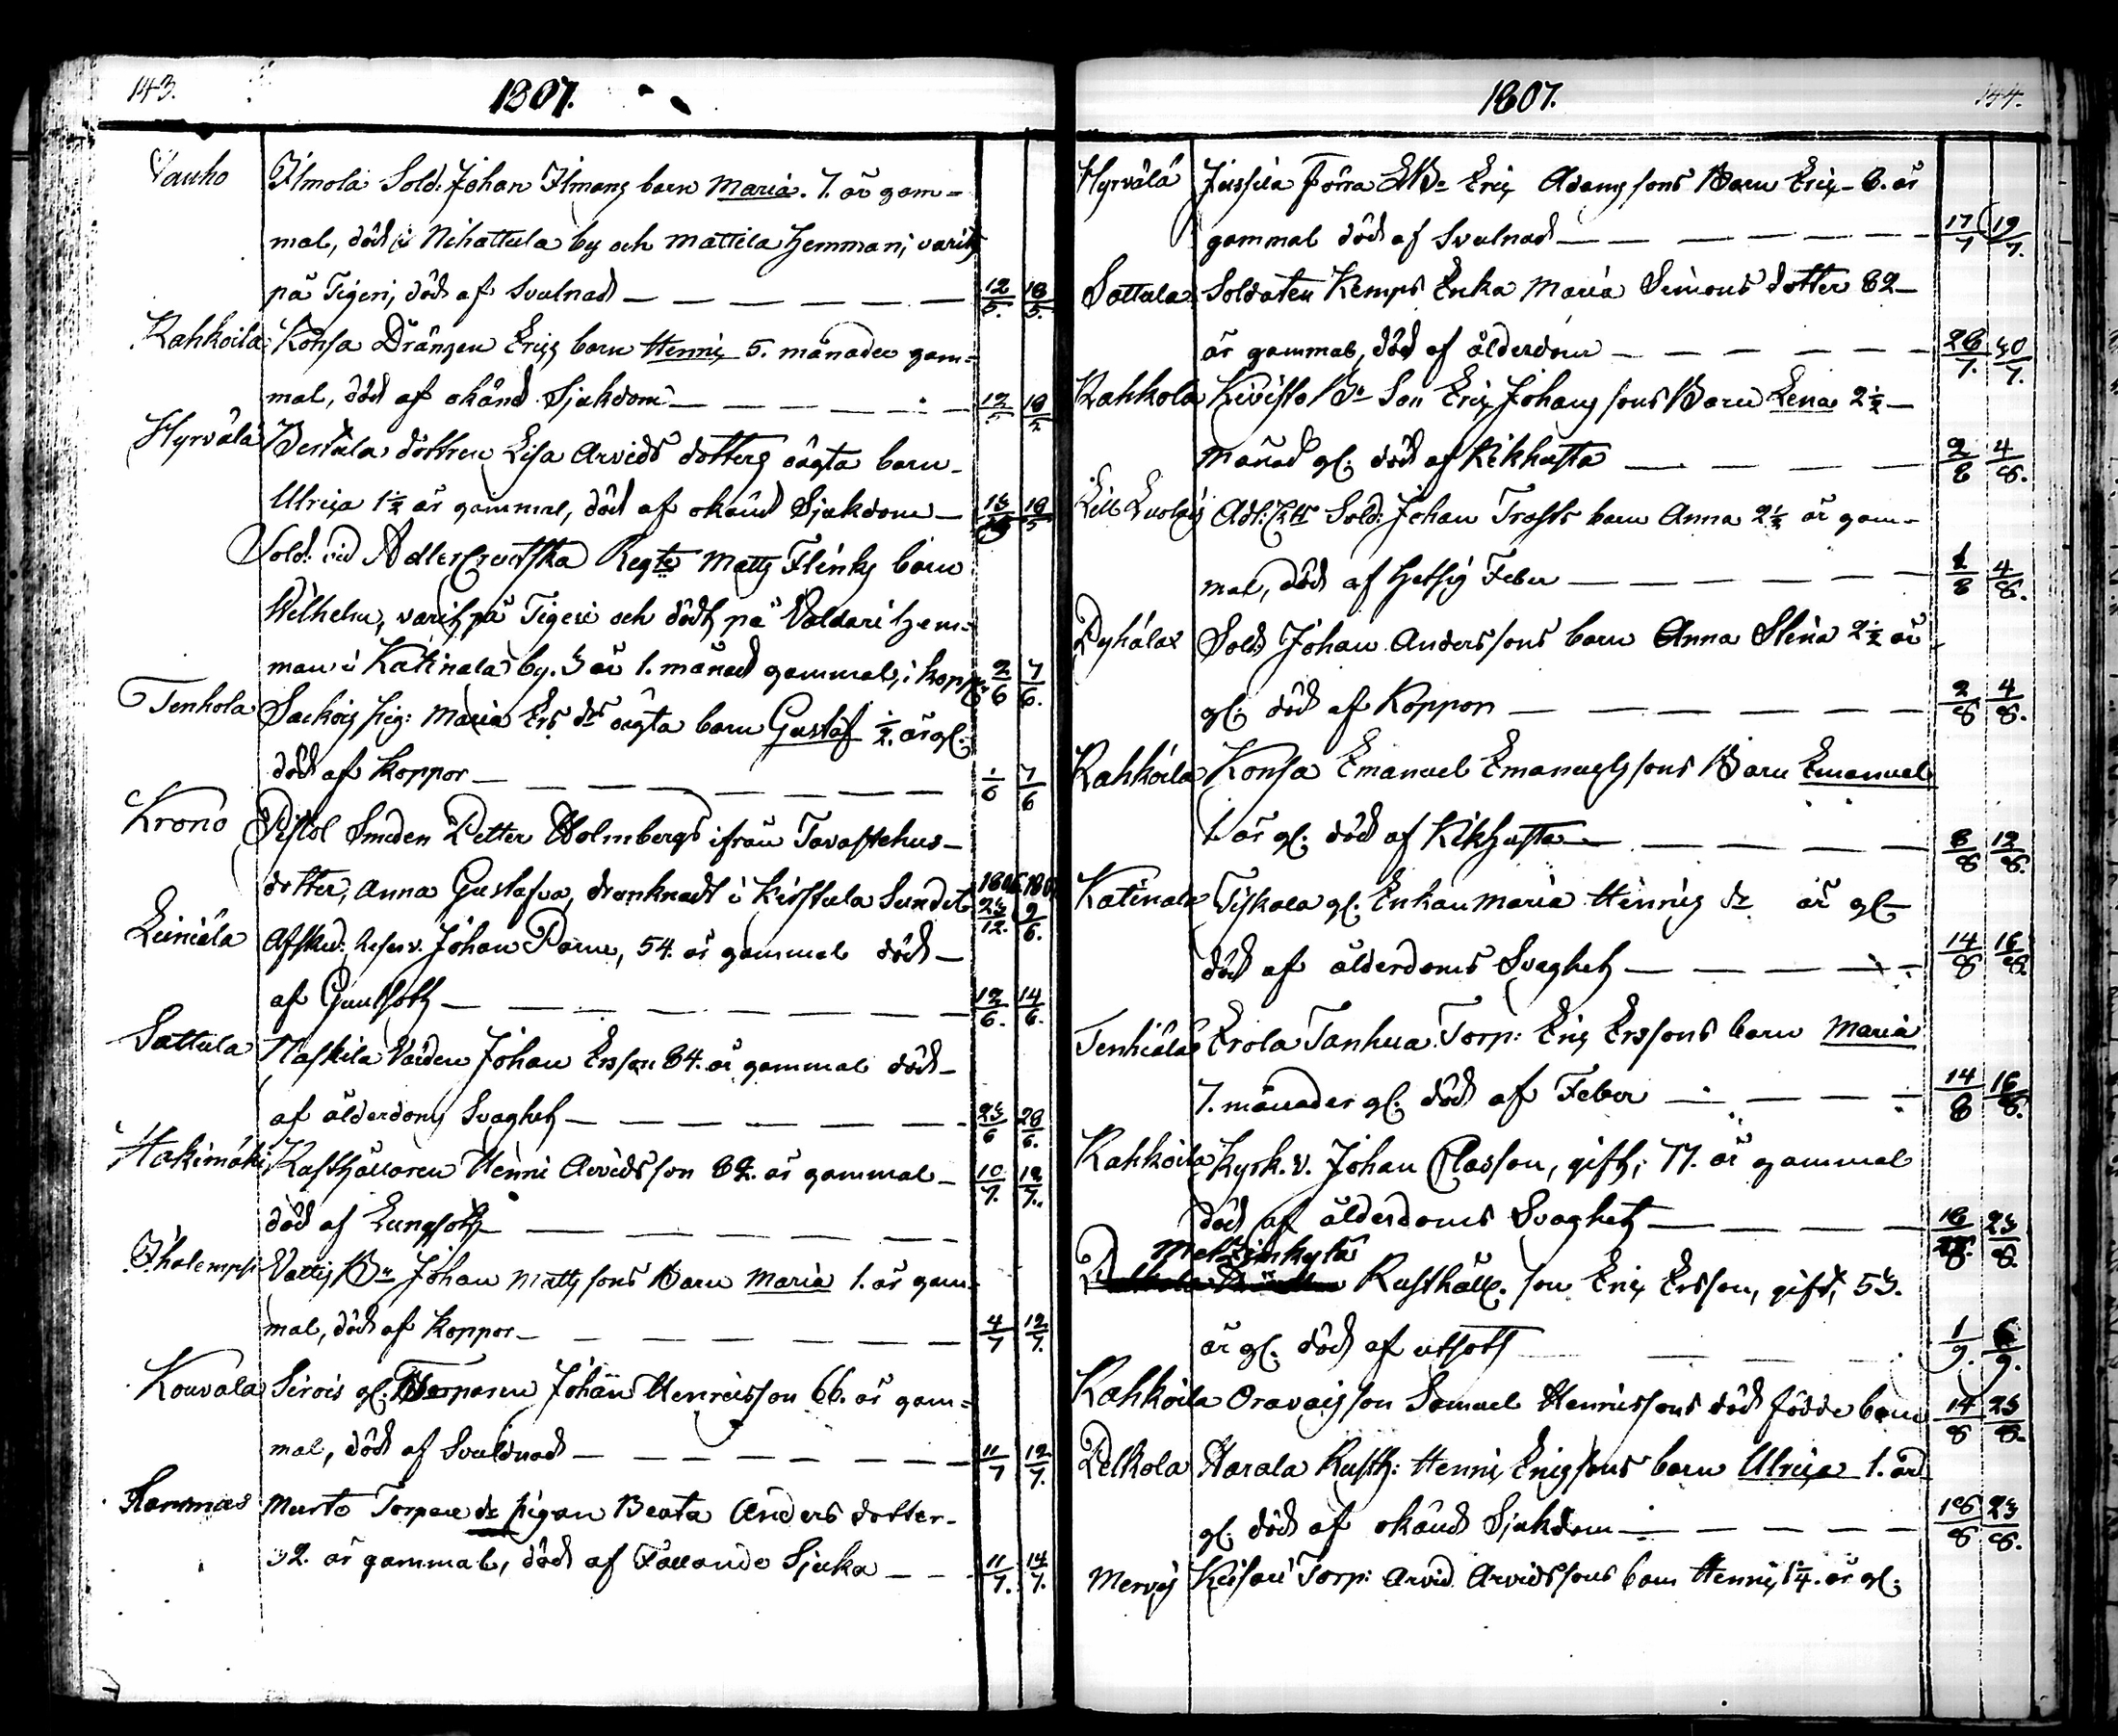 143.
1807.
Vauho Ilmola Sold: Johan Ilmans barn Maria. 7. år gam-
mal, död i Nihattula by och Mattila Hemman, varit
på Tigeri, död af Svulnad 12/5. 18/5.
Rahkoila Konsa Drängen Erics barn Henric 5. månader gam-
mal, död af okänd Sjukdom 12/5 18/5
Hyrvälä Bertula dottren Lisa Arvids dotters oägta barn
Ulrica 1½ år gammal, död af okänd Sjukdom 13/5 18/5
Sold: vid Adlercreutska Regte Matts Flinks barn
Wilhelm, varit på Tigeri och dödt på Valdari Hem-
man i Katinala by. 3 år 1. månad gammal, i koppor 2/6 7/6.
Tenhola Sackois pig: Maria Ers drs oägta barn Gustaf ½ år gl:
död af koppor 1/6 7/6
Krono Pistol Smeden Petter Holmbergs ifrån Tavastehus
dotter, Anna Gustafva, drunknadt i Kirstula Sundet 1806. 1807
23/12. 9/6.
Leiniälä Afsked: Johan Parm, 54. år gammal död
af Gulsoth 12/6. 14/6.
Sattula Naskila Vården Johan Ersson 84. år gammal död
af ålderdoms Svaghet 23/6 28/6.
Hakimäki Rusthållaren Henric Arvidsson 82. år gammal 10/7. 12/7.
död af Lungsoth
Ihalempi Vattis Br Johan Mattssons Barn Maria 1. år gam-
mal, död af koppor 4/7 12/7.
Kouvala Sirois gl: Torparen Johan Henricsson 66. år gam-
mal, död af Svuldnad 11/7 12/7.
Rammas Murto Torpare dr pigan Beata Anders dotter
32. år gammal, död af Fallande Sjuka 11/7. 14/7.
1807.
144.
Hyrvälä Jussila Förra Br Eric Adamssons Barn Eric 6. år
gammal död af Svulnad 17/7 19/7.
Sattula Soldaten Kemps Enka Maria Simons dotter 82
år gammal, död af ålderdom 26/7. 30/7.
Rahkola Kivistö Br Son Eric Johanssons Barn Lena 2½
månad gl: död af Kikhosta 2/8 4/8.
Lill Adl: Sold: Johan Trasts barn Anna 2½ år gam-
mal, död af Hetsig Feber 1/8 4/8.
Pyhälax Sold: Johan Anderssons barn Anna Stina 2½ år
gl: död af Koppor 2/8 4/8.
Rahkoila Konsa Emanuel Emanuelssons Barn Emanuel
1 år gl: död af Kikhosta 8/8 12/8.
Katinala Tyskola gl: Enkan Maria Henrics dr år gl
död af ålderdoms Svaghet 14/8 16/8
Tenhiälä Erola Tanhua Torp: Eric Erssons barn Maria
7. månader gl: död af Feber 14/8 16/8.
Rahkoila Kyrk. v. Johan Classon, gift, 77. år gammal
död af ålderdoms Svaghet 18/8. 23/8.
Metzinkylä
Rusthåll. son Eric Ersson, gift, 53.
år gl: död af utsoth 1/9. 6/9.
Rahkoila Oravais son Samuel Henricssons död födde barn 14/8 23/8.
Pelkola Harala Rusth: Henric Ericssons barn Ulrica 1. år
gl: död af okänd Sjukdom 18/8 23/8.
Mervis Kiisari Torp: Arvid Arvidssons barn Henric 1¼. år gl: